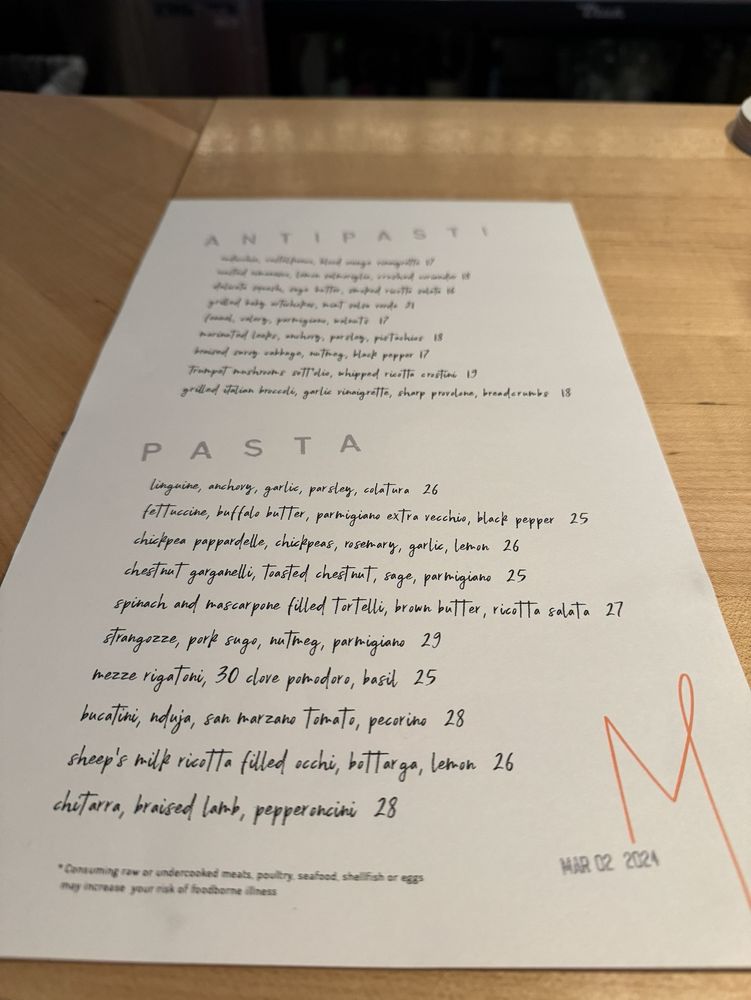 ANTIPASTI
radicchio, castelfranco, blood orange vinaigrette 17
roasted romanesco, lemon colatura, crushed coriander 18
delicata squash, sage butter, smoked ricotta salata 18
grilled baby artichokes, mint salsa verde 21
fennel, celery, parmigiano, walnuts 17
marinated leeks, anchovy, parsley, pistachios 18
braised savoy cabbage, nutmeg, black pepper 17
trumpet mushrooms sott'olio, whipped ricotta crostini 19
grilled italian broccoli, garlic vinaigrette, sharp provolone, breadcrumbs 18
PASTA
linguine, anchovy, garlic, parsley, colatura 26
fettuccine, buffalo butter, parmigiano extra vecchio, black pepper 25
chickpea pappardelle, chickpeas, rosemary, garlic, lemon 26
chestnut garganelli, toasted chestnut, sage, parmigiano 25
spinach and mascarpone filled tortelli, brown butter, ricotta salata 27
strangozze, pork sugo, nutmeg, parmigiano 29
mezze rigatoni, 30 clove pomodoro, basil 25
bucatini, nduja, san marzano tomato, pecorino 28
sheep's milk ricotta filled occhi, bottarga, lemon 26
chitarra, braised lamb, pepperoncini 28
M
MAR 02 2024
* Consuming raw or undercooked meats, poultry, seafood, shellfish or eggs
may increase your risk of foodborne illness